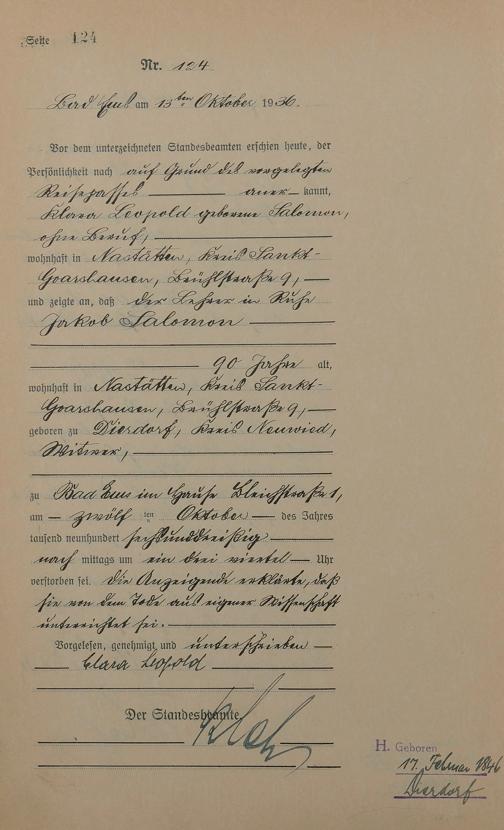 Seite 124
Nr. 124
Bad Ems am 13ten Oktober 1936.
Vor dem unterzeichneten Standesbeamten erschien heute, der
Persönlichkeit nach auf Grund des vorgelegten
Reisepasses aner kannt,
Klara Leopold geborene Salomon,
ohne Beruf,
wohnhaft in Nastätten, Kreis Sankt-
Goarshausen, Brühlstraße 9,
und zeigte an, daß der Lehrer in Ruhe
Jakob Salomon
90 Jahre alt,
wohnhaft in Nastätten, Kreis Sankt-
Goarshausen, Brühlstraße 9,
geboren zu Dierdorf, Kreis Neuwied,
Witwer,
zu Bad Ems im Hause Bleichstraße 1,
am zwölf ten Oktober des Jahres
tausend neunhundert sechsunddreißig
nach mittags um ein drei viertel Uhr
verstorben sei. Die Anzeigende erklärte, daß
sie von dem Tode aus eigener Wissenschaft
unterrichtet sei.
Vorgelesen, genehmigt und unterschrieben
Clara Leopold
Der Standesbeamte
H. Geboren
17. Februar 1846
Dierdorf